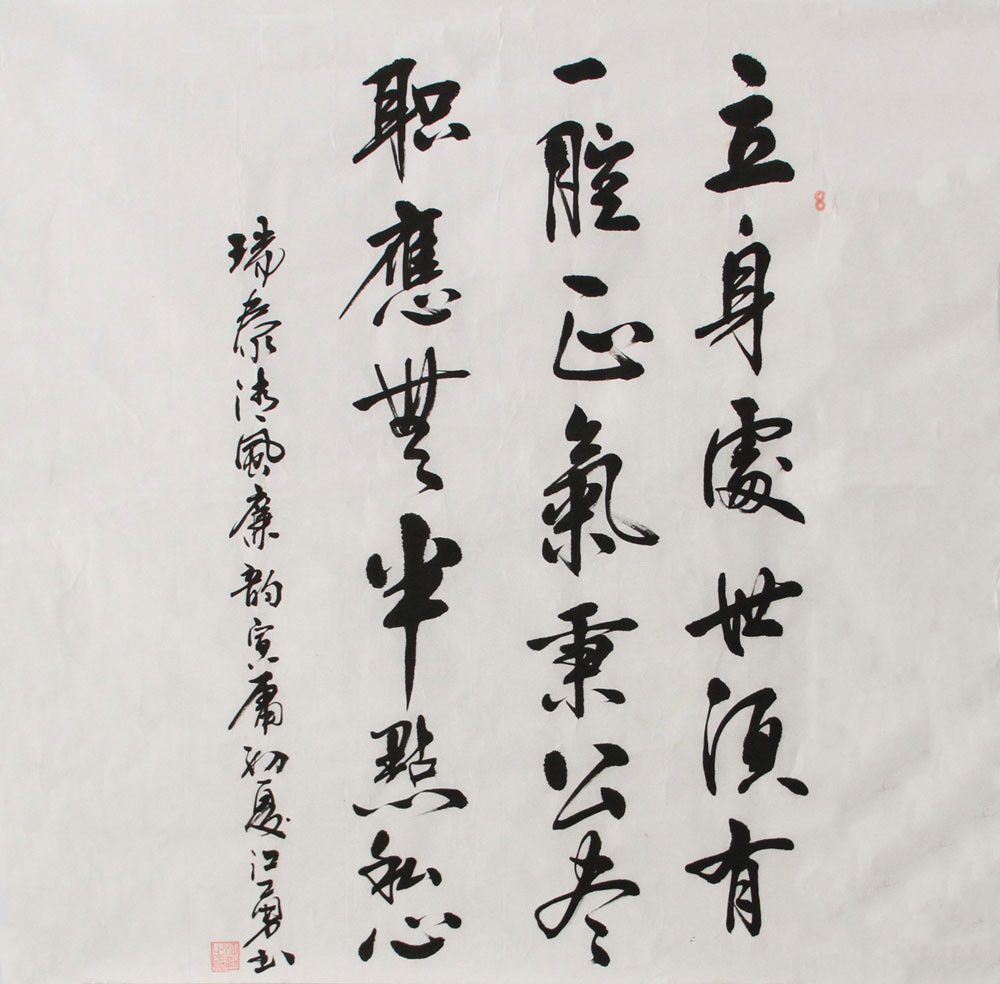 立身處世須有
一腔正氣秉公尽
职應無半點私心
瑞泰清風廉韵寅庸初夏江勇书